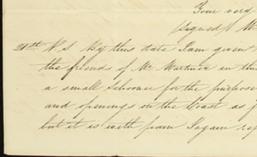 Your very
(Signed) M
21th N.S. By this date I am given
the friends of Mr Martinez in the
a small Schooner for the purpose
and openings in the Coast as f
but it is with pain I again rep